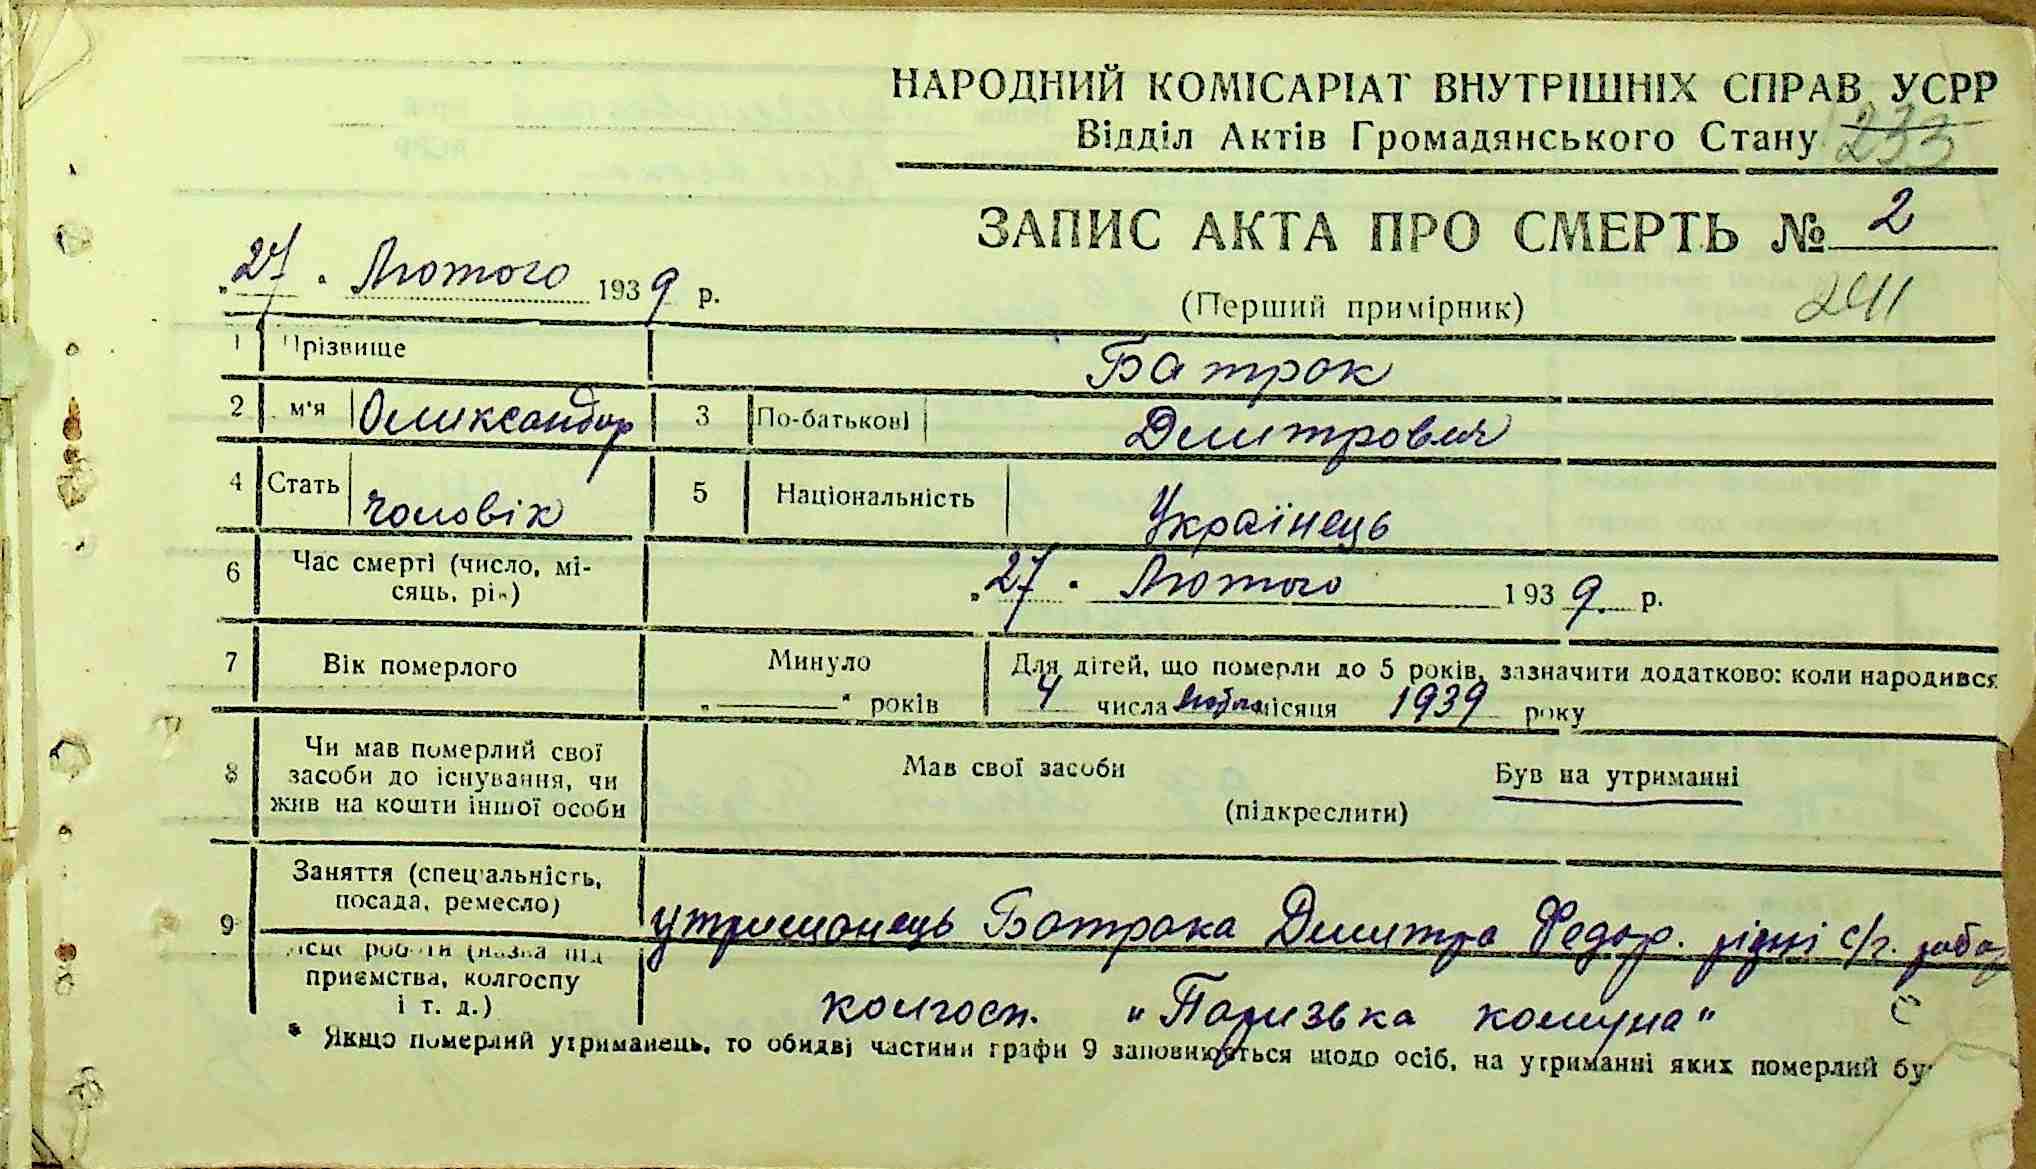 НАРОДНИЙ КОМІСАРІАТ ВНУТРІШНІХ СПРАВ УСРР
Відділ Актів Громадянського Стану 233
ЗАПИС АКТА ПРО СМЕРТЬ № 2
„27" Лютого 1939 р.
(Перший примірник) 241
1 Прізвище Батрок
2 м'я Олександр 3 По-батькові
4 Стать Чоловік 5 Національність Українець
6 Час смерті (число, мі-
сяць, рік) „27" Лютого 1939 р.
7 Вік померлого Минуло Для дітей, що померли до 5 років, зазначити додатково: коли народився
„—" років 4 числа місяця 1939 року
8 Чи мав померлий свої
засоби до існування, чи
жив на кошти іншої особи
Мав свої засоби Був на утриманні
(підкреслити)
9 Заняття (спеціальність,
посада, ремесло)
утриманець Батрака Дмитра Федор. рідні с/г.
місце роботи (назва під
приємства, колгоспу
і т. д.)
колгосп. „Паризька комуна"
* Якщо померлий утриманець, то обидві частини графи 9 заповнюються щодо осіб, на утриманні яких померлий бу